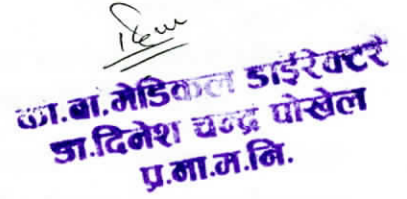 का.बा.मेडिकल डाईरेक्टर
डा.दिनेश चन्द्र पोखेल
प्र.ना.म.नि.